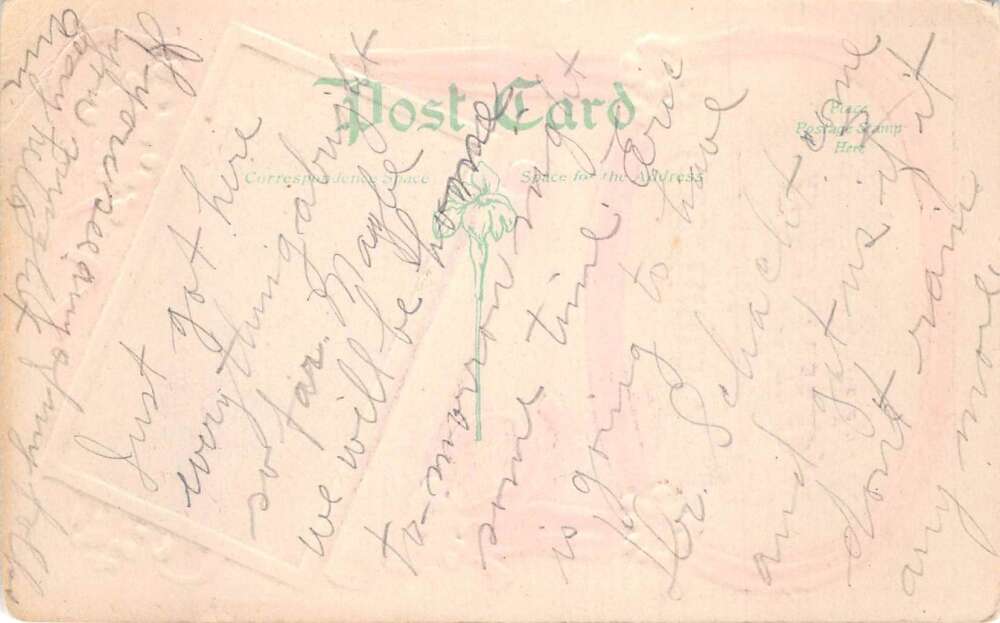 Post Card
Correspondence Space
Space for the Address
Place
Postage Stamp
Here
Just got here
everything alright
so far. Maybe
we will be home
to-morrow night
some time. Eric
is going to have
Dr. Schacht come
and get us if it
dont rain
any more
If you see any of my folks
tell